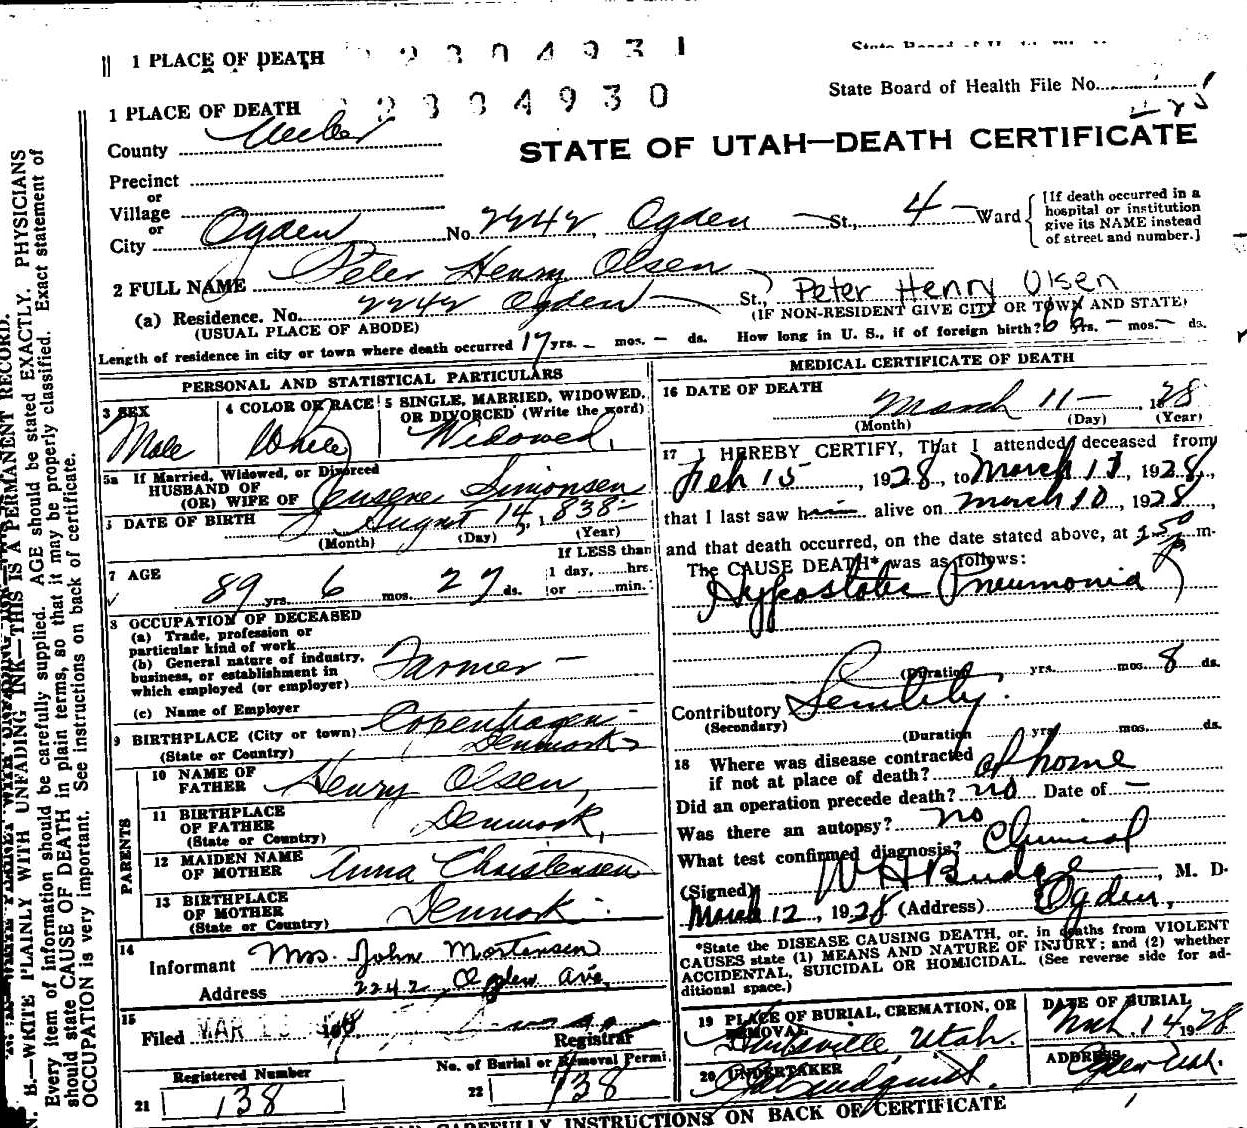 1 PLACE OF DEATH 2304931
State Board of Health File No.
1 PLACE OF DEATH 2304930
County Weber
STATE OF UTAH—DEATH CERTIFICATE
Precinct
or
Village
or
City Ogden No. 2242 Ogden St., 4 — Ward
[If death occurred in a hospital or institution give its NAME instead of street and number.]
2 FULL NAME Peter Henry Olsen
Peter Henry Olsen
(a) Residence. No. 2242 Ogden St.,
(USUAL PLACE OF ABODE) (IF NON-RESIDENT GIVE CITY OR TOWN AND STATE)
Length of residence in city or town where death occurred 17 yrs. – mos. – ds. How long in U. S., if of foreign birth? yrs. – mos. – ds.
PERSONAL AND STATISTICAL PARTICULARS
3 SEX
Male
4 COLOR OR RACE
White
5 SINGLE, MARRIED, WIDOWED, OR DIVORCED (Write the word)
Widowed,
5a If Married, Widowed, or Divorced
HUSBAND OF
(OR) WIFE OF Simonsen
DATE OF BIRTH August 14, 1838
(Month) (Day) (Year)
7 AGE 89 yrs. 6 mos. 27 ds.
If LESS than
1 day, ......hrs.
or ......min.
8 OCCUPATION OF DECEASED
(a) Trade, profession or
particular kind of work
(b) General nature of industry,
business, or establishment in
which employed (or employer)
Farmer –
(c) Name of Employer
9 BIRTHPLACE (City or town) Copenhagen –
(State or Country) Denmark
PARENTS
10 NAME OF
FATHER Henry Olsen,
11 BIRTHPLACE
OF FATHER Denmark,
(State or Country)
12 MAIDEN NAME
OF MOTHER Anna Christensen
13 BIRTHPLACE
OF MOTHER Denmark
(State or Country)
14
Informant Mrs. John Mortensen
Address 2242 Ogden Ave,
15
Filed MAR
Registrar
Registered Number
21 138
No. of Burial or Removal Permi.
22 138
MEDICAL CERTIFICATE OF DEATH
16 DATE OF DEATH
March 11 – 1928
(Month) (Day) (Year)
17 I HEREBY CERTIFY, That I attended deceased from
Feb 15, 1928, to March 11, 1928,
that I last saw him alive on March 10, 1928,
and that death occurred, on the date stated above, at m.
The CAUSE DEATH* was as follows:
Hypostatic Pneumonia
(Duration yrs. mos. 8 ds.
Contributory Senility.
(Secondary)
(Duration yrs. mos. ds.
18 Where was disease contracted
if not at place of death? at home
Did an operation precede death? no Date of –
Was there an autopsy? no
What test confirmed diagnosis? Clinical
(Signed) W H Budge, M. D.
March 12, 1928 (Address) Ogden,
*State the DISEASE CAUSING DEATH, or, in deaths from VIOLENT
CAUSES state (1) MEANS AND NATURE OF INJURY; and (2) whether
ACCIDENTAL, SUICIDAL OR HOMICIDAL. (See reverse side for ad-
ditional space.)
19 PLACE OF BURIAL, CREMATION, OR
REMOVAL
Huntsville, Utah.
DATE OF BURIAL
Mch. 14 1928
20 UNDERTAKER
Lindquist.
ADDRESS
Ogden Utah.
CAREFULLY INSTRUCTIONS ON BACK OF CERTIFICATE
N. B.—WRITE PLAINLY WITH UNFADING INK—THIS IS A PERMANENT RECORD.
Every item of information should be carefully supplied. AGE should be stated EXACTLY. PHYSICIANS
should state CAUSE OF DEATH in plain terms, so that it may be properly classified. Exact statement of
OCCUPATION is very important. See instructions on back of certificate.